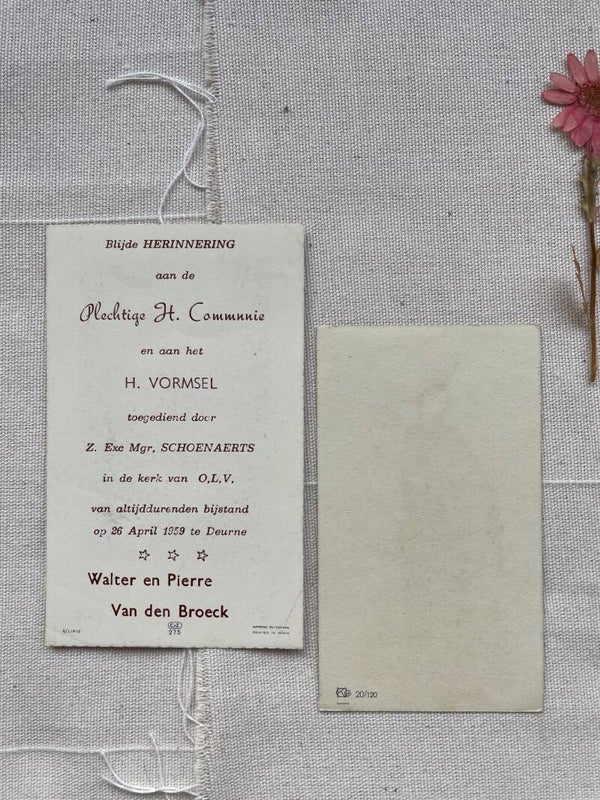 Blijde HERINNERING
aan de
Plechtige H. Communie
en aan het
H. VORMSEL
toegediend door
Z. Exc Mgr, SCHOENAERTS
in de kerk van O,L,V,
van altijddurenden bijstand
op 26 April 1959 te Deurne
Walter en Pierre
Van den Broeck
CoZ
275
PRINTED IN SPAIN
20/120